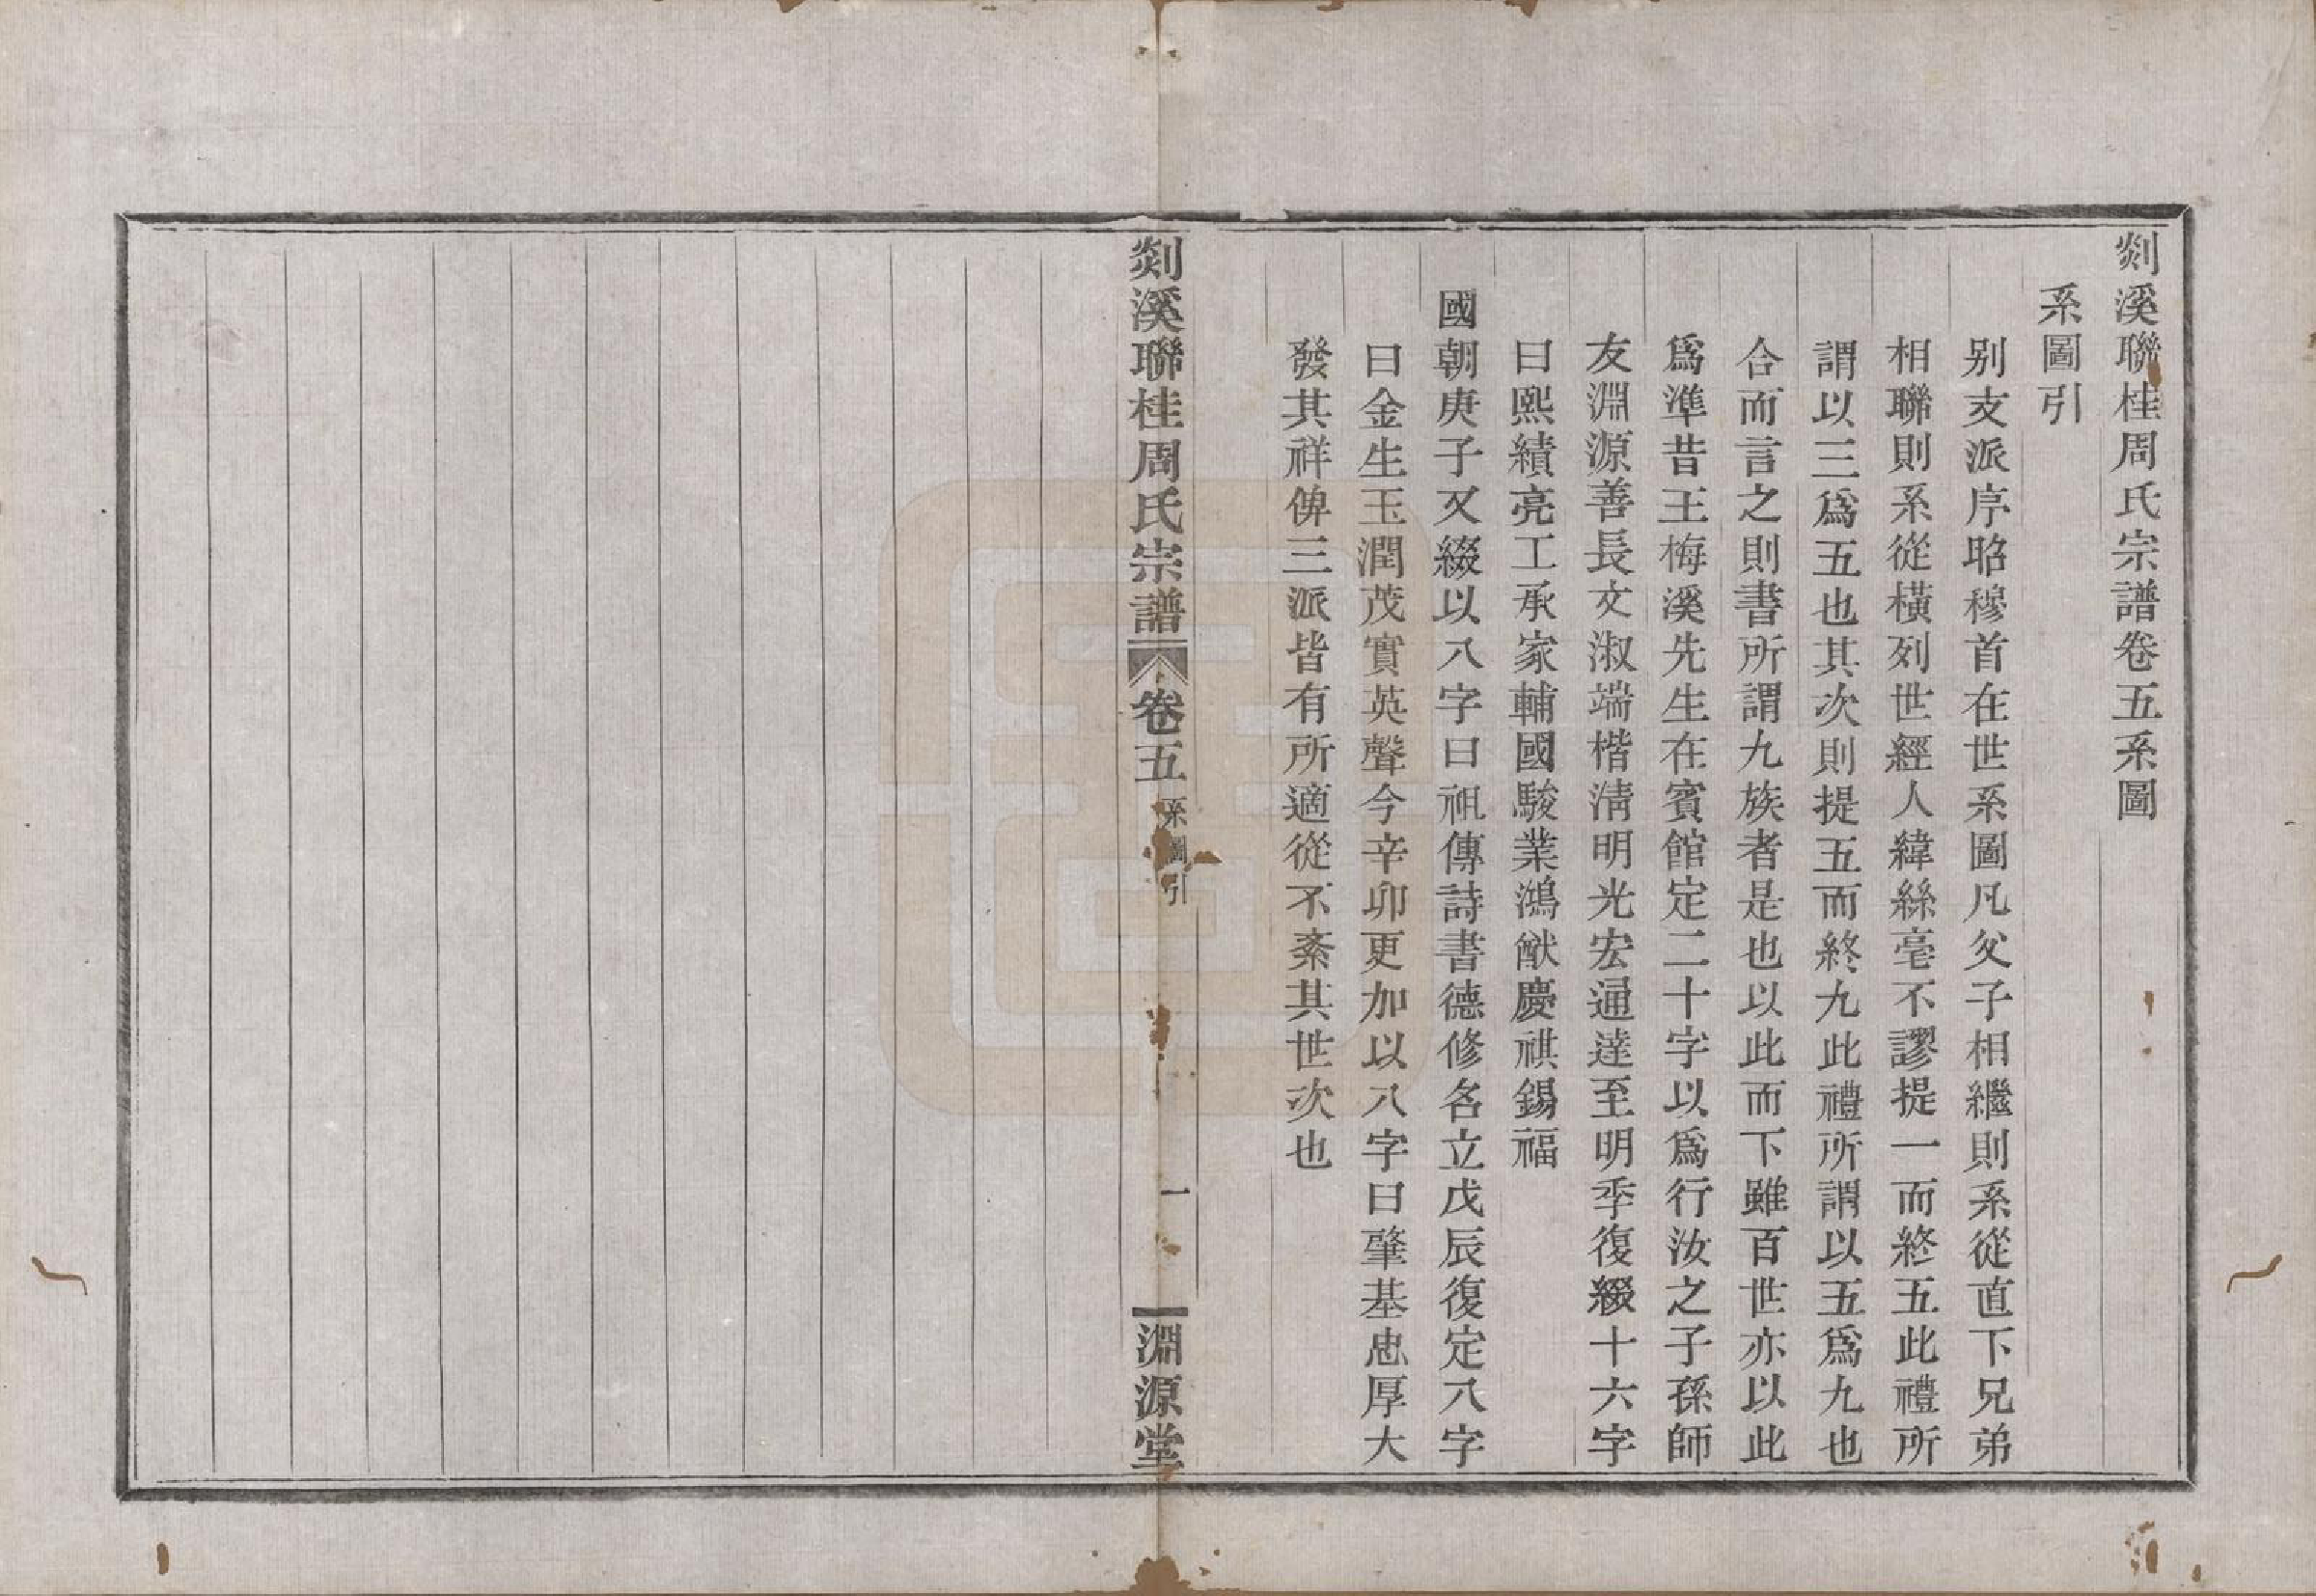 剡溪聯桂周氏宗譜卷五系圖
系圖引
别支派序昭穆首在世系圖凡父子相繼則系從直下兄弟
相聯則系從橫列世經人緯絲毫不謬提一而終五此禮所
謂以三爲五也其次則提五而終九此禮所謂以五爲九也
合而言之則書所謂九族者是也以此而下雖百世亦以此
爲準昔王梅溪先生在賓館定二十字以爲行汝之子孫師
友淵源善長文淑端楷淸明光宏通達至明季復綴十六字
曰熙績亮工承家輔國駿業鴻猷慶祺錫福
國朝庚子又綴以八字曰祖傳詩書德修名立戊辰復定八字
曰金生玉潤茂實英聲今辛卯更加以八字曰肇基忠厚大
發其祥俾三派皆有所適從不紊其世次也
剡溪聯桂周氏宗譜 卷五 系圖引 一 淵源堂